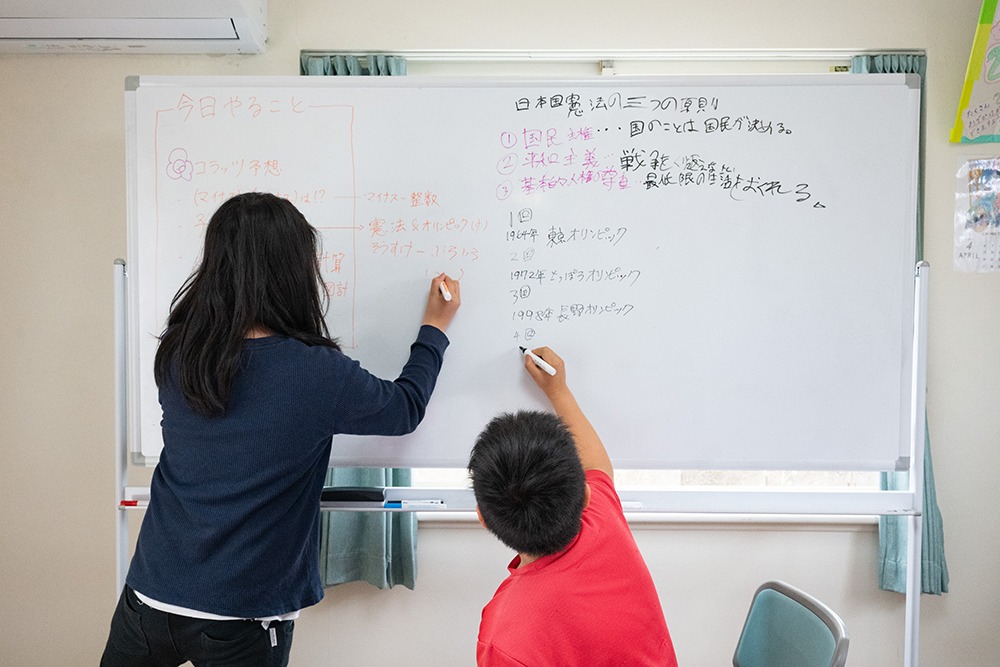 今日やること
コラッツ予想
(マイナス
は!?
マイナス―整数
憲法&オリンピック(ナ)
計算
図計
日本国憲法の三つの原則
① 国民主権・・・国のことは国民が決める。
② 平和主義
戦争
③ 基本的人権の尊重
最低限の生活をおくれる。
1回
1964年 東京オリンピック
2回
1972年 さっぽろオリンピック
3回
1998年 長野オリンピック
4回
4
APRIL
たくさん